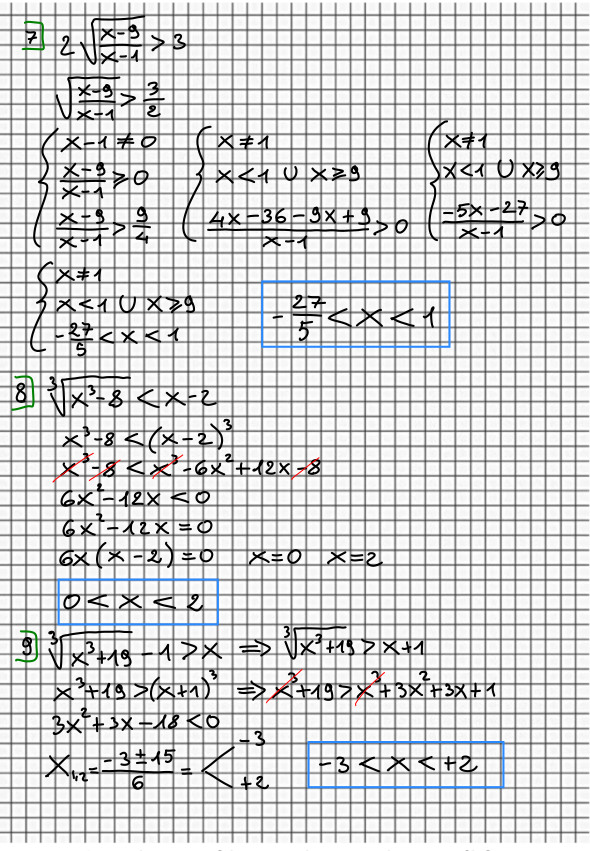 7 2√((x-9)/(x-1)) > 3
√((x-9)/(x-1)) > 3/2
{ x-1 ≠ 0 { x≠1 { x≠1
(x-9)/(x-1) ⩾ 0 x<1 ∪ x⩾9 x<1 ∪ x⩾9
(x-9)/(x-1) > 9/4 (4x-36-9x+9)/(x-1) > 0 (-5x-27)/(x-1) > 0
{ x≠1
x<1 ∪ x⩾9
-27/5 < x < 1 -27/5 < x < 1
8 ∛(x³-8) < x-2
x³-8 < (x-2)³
x³-8 < x³-6x²+12x-8
6x²-12x < 0
6x²-12x = 0
6x(x-2) = 0 x=0 x=2
0 < x < 2
9 ∛(x³+19) - 1 > x ⇒ ∛(x³+19) > x+1
x³+19 > (x+1)³ ⇒ x³+19 > x³+3x²+3x+1
3x²+3x-18 < 0
X₁,₂ = (-3±15)/6 = < -3 +2 -3 < x < +2